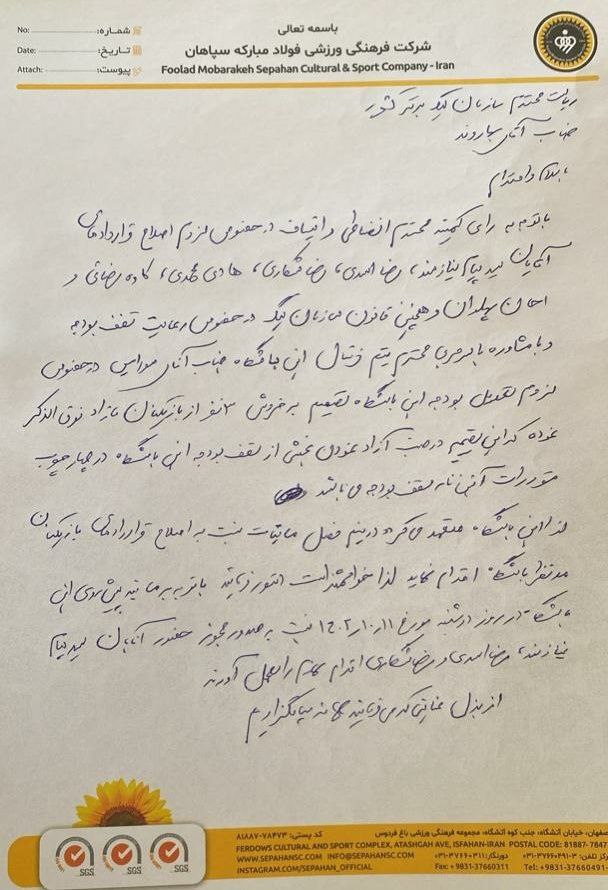 باسمه تعالی
شرکت فرهنگی ورزشی فولاد مبارکه سپاهان
Foolad Mobarakeh Sepahan Cultural & Sport Company - Iran
No: شماره:
Date: تاریخ:
Attach: پیوست:
ریاست محترم سازمان لیگ برتر کشور
جناب آقای سهاروند
با سلام و احترام
با توجه به رای کمیته محترم انضباطی در خصوص لزوم اصلاح قراردادهای
آقایان سید پیام نیازمند، رضا اسدی، رضا شکاری، هادی محمدی، کاوه رضائی و
احسان پهلوان و همچنین قانون سازمان لیگ در خصوص رعایت سقف بودجه
و با مشاوره با سرمربی محترم تیم فوتبال این باشگاه جناب آقای مورایس در خصوص
لزوم تعدیل بودجه این باشگاه تصمیم به فروش ۳ نفر از بازیکنان مازاد فوق الذکر
نموده که این تصمیم در جهت آزاد نمودن بخشی از سقف بودجه این باشگاه در چهارچوب
مقررات آئین نامه سقف بودجه می باشد
لذا این باشگاه متعهد می گردد در نیم فصل مسابقات نسبت به اصلاح قراردادهای بازیکنان
مد نظر باشگاه اقدام نماید لذا خواهشمند است دستور فرمائید با توجه به برنامه پیش روی این
باشگاه در روز دوشنبه مورخ ۱۴۰۲/۱۰/۱۱ نسبت به صدور مجوز حضور آقایان سید پیام
نیازمند، رضا اسدی و رضا شکاری اقدام لازم را بعمل آورند
از بذل عنایتی که می فرمائید صمیمانه سپاسگزاریم
SGS SGS SGS
اصفهان، خیابان آتشگاه، جنب کوه آتشگاه، مجموعه فرهنگی ورزشی باغ فردوس کد پستی: ۷۸۴۷۳-۸۱۸۸۷
FERDOWS CULTURAL AND SPORT COMPLEX, ATASHGAH AVE, ISFAHAN-IRAN POSTAL CODE: 81887-7847
مرکز تلفن: ۰۳۱-۳۷۶۶۰۴۹۱-۳ دورنگار: ۰۳۱-۳۷۶۶۰۳۱۱ WWW.SEPAHANSC.COM INFO@SEPAHANSC.COM
Tel: +9831-37660491 Fax: +9831-37660311 INSTAGRAM.COM/SEPAHAN_OFFICIAL